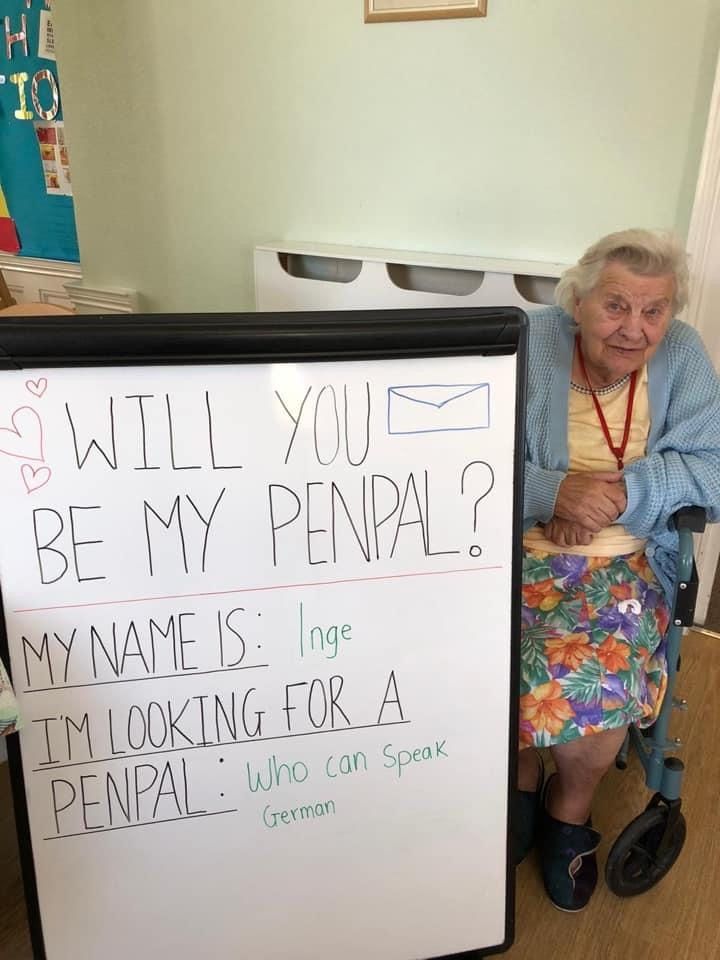 H
IO
WILL YOU
BE MY PENPAL?
MY NAME IS: Inge
I'M LOOKING FOR A
PENPAL: Who can Speak
German